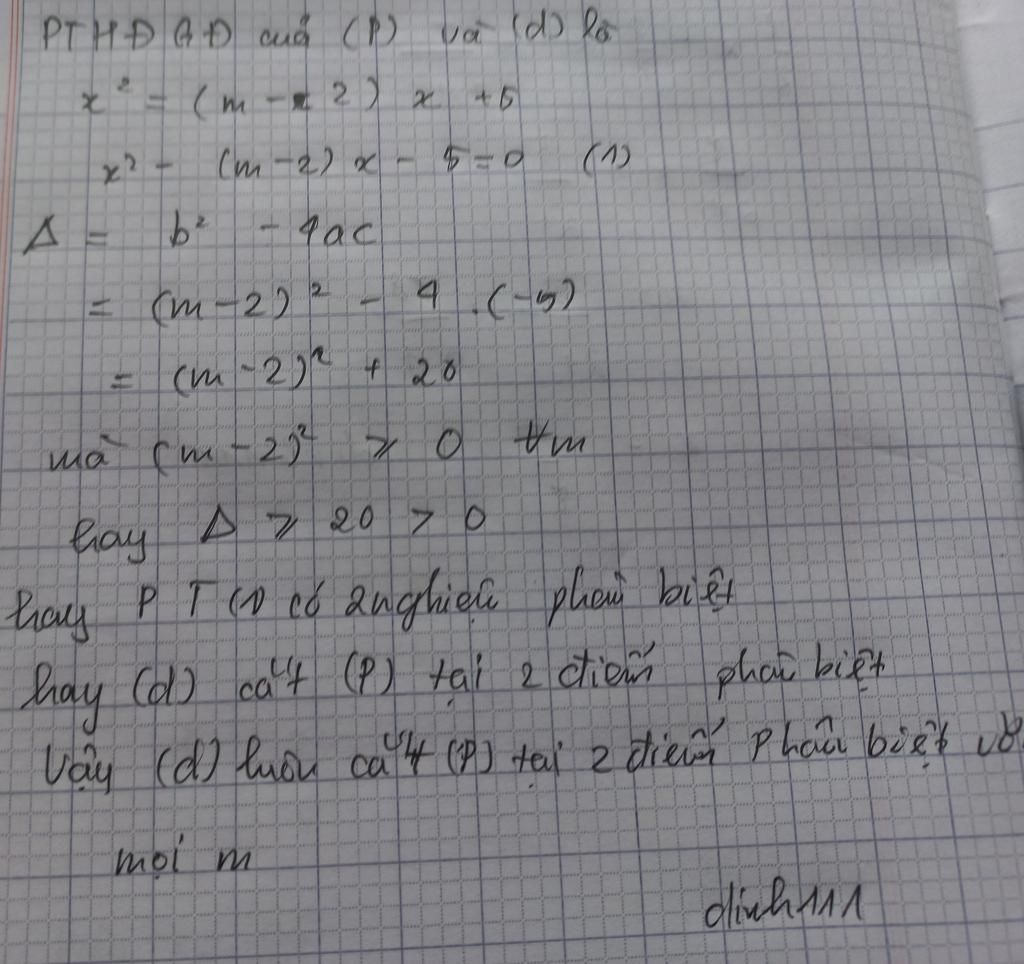 PTHĐGĐ cuả (P) và (d) là
x² = (m - 2) x + 5
x² - (m - 2) x - 5 = 0 (1)
Δ = b² - 4ac
= (m - 2)² - 4 . (-5)
= (m - 2)² + 20
mà (m - 2)² ≥ 0 ∀m
hay Δ ≥ 20 > 0
hay PT (1) có 2 nghiệm phân biệt
hay (d) cắt (P) tại 2 điểm phân biệt
Vậy (d) luôn cắt (P) tại 2 điểm phân biệt với
mọi m
dinh111